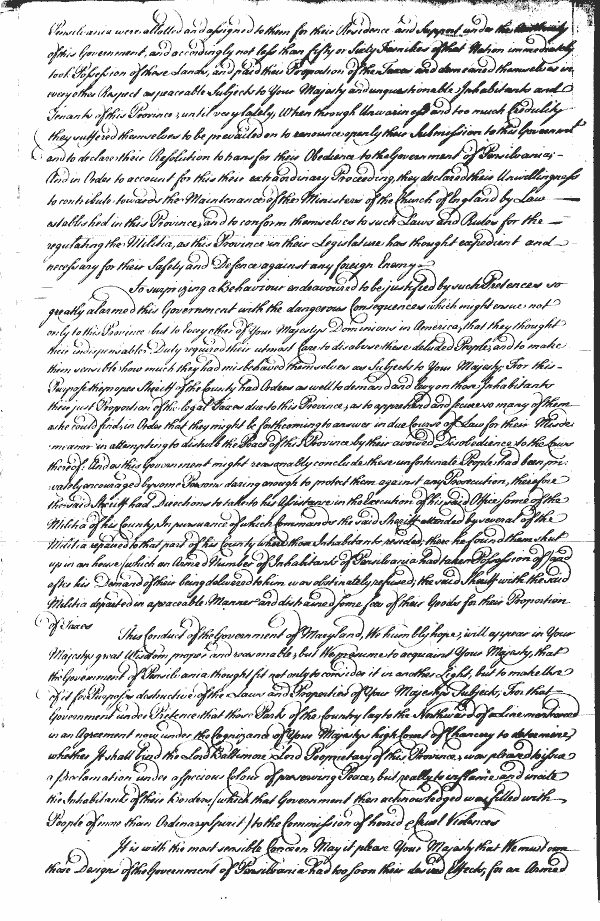 Pensilvania were allotted and assigned to them for their Residence and Support under the Authority
of this Government, and accordingly not less than fifty or Sixty Families of that Nation immediately
took Possession of these Lands, and paid their Proportion of the Taxes and demeaned themselves in
every other Respect as peaceable Subjects to Your Majesty and unquestionable Inhabitants and
Tenants of this Province; until very lately, When through Unwariness and too much Credulity
they suffered themselves to be prevailed on to renounce openly their Submission to this Government
and to declare their Resolution to transfer their Obedience to the Government of Pensilvania;
And in Order to account for this their extraordinary Proceeding, they declared their Unwillingness
to contribute towards the Maintenance of the Ministers of the Church of England by Law
established in this Province, and to conform themselves to such Laws and Rules for the
regulating the Militia, as this Province in their Legislature has thought expedient and
necessary for their Safety and Defence against any foreign Enemy
So surprizing a Behaviour endeavoured to be justified by such Pretences so
greatly alarmed this Government with the dangerous Consequences which might ensue not
only to this Province but to Every other of Your Majestys Dominions in America, that they thought
their indispensable Duty required their utmost Care to disabuse these deluded People, and to make
them sensible how much they had misbehaved themselves as Subjects to Your Majesty. For this
Purpose the proper Sheriff of the County had Orders as well to demand and levy on those Inhabitants
their just Proportion of the legal Taxes due to this Province, as to apprehend and secure so many of them
as he could find, in Order that they might be forthcoming to answer in due Course of Law for their Misde
meanor in attempting to disturb the Peace of this Province by their avowed Disobedience to the Laws
thereof. And as this Government might reasonably conclude these unfortunate People had been pri
vately encouraged by some Persons daring enough to protect them against any Prosecution, therefore
the said Sheriff had Directions to take to his Assistance in the Execution of his said Office some of the
Militia of his County. In pursuance of which Commands the said Sheriff attended by several of the
Militia repaired to that part of his County where those Inhabitants resided, there he found them shut
up in an house (which an Armed Number of Inhabitants of Pensilvania had taken Possession of) and
after his Demand of their being delivered to him was obstinately refused; the said Sheriff with the said
Militia departed in a peaceable Manner and distrained some few of their Goods for their Proportion
of Taxes
This Conduct of the Government of Maryland, We humbly hope, will appear in Your
Majestys great Wisdom, proper and reasonable; but We presume to acquaint Your Majesty, that
the Government of Pensilvania thought fit not only to consider it in another Light, but to make Use
of it for Purposes destructive of the Laws and Properties of Your Majestys Subjects, For that
Government under Pretence that those Parts of the Country lay to the Northward of a Line mentioned
in an Agreement now under the Cognizance of Your Majestys high Court of Chancery to determine
whether It shall bind the Lord Baltimore Lord Proprietary of this Province, was pleased to issue
a Proclamation under a specious Colour of preserving Peace, but really to inflame and incite
the Inhabitants of their Borders, (which that Government then acknowledged was filled with
People of more than Ordinary Spirit) to the Commission of horrid & cruel Violences
It is with the most sensible Concern May it please Your Majesty that We must own
those Designs of the Government of Pensilvania had too soon their desired Effects, for an Armed